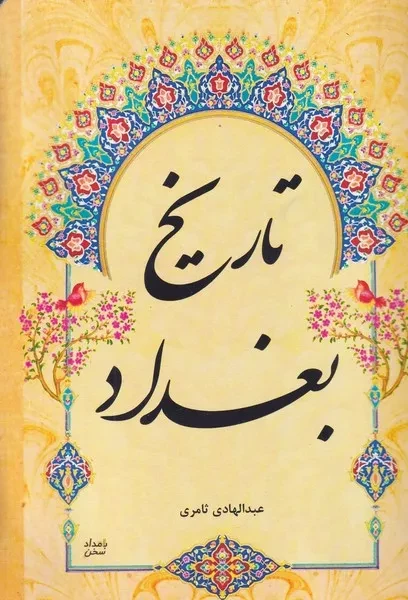 تاریخ
بغداد
عبدالهادی ثامری
بامداد
سخن